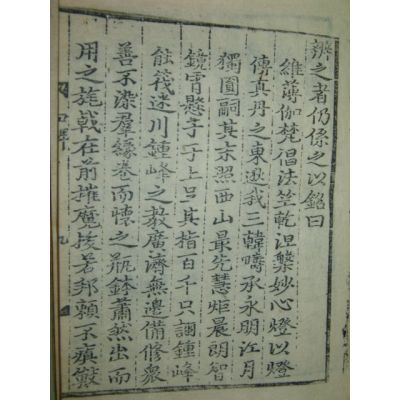 辨之者仍係之以銘曰
維薄伽梵倡法竺乾涅槃妙心燈以燈
傳真丹之東逖我三韓疇承永明江月
獨圓嗣其照西山最先慧炬晨朗智
鏡宵懸于于上其指百千只鍾峰
能筏迷川鍾峰之教廣濟無邊備修衆
善不染羣緣卷而懷之瓶鉢蕭然出而
用之旄戟在前摧魔拔著邦賴不
九